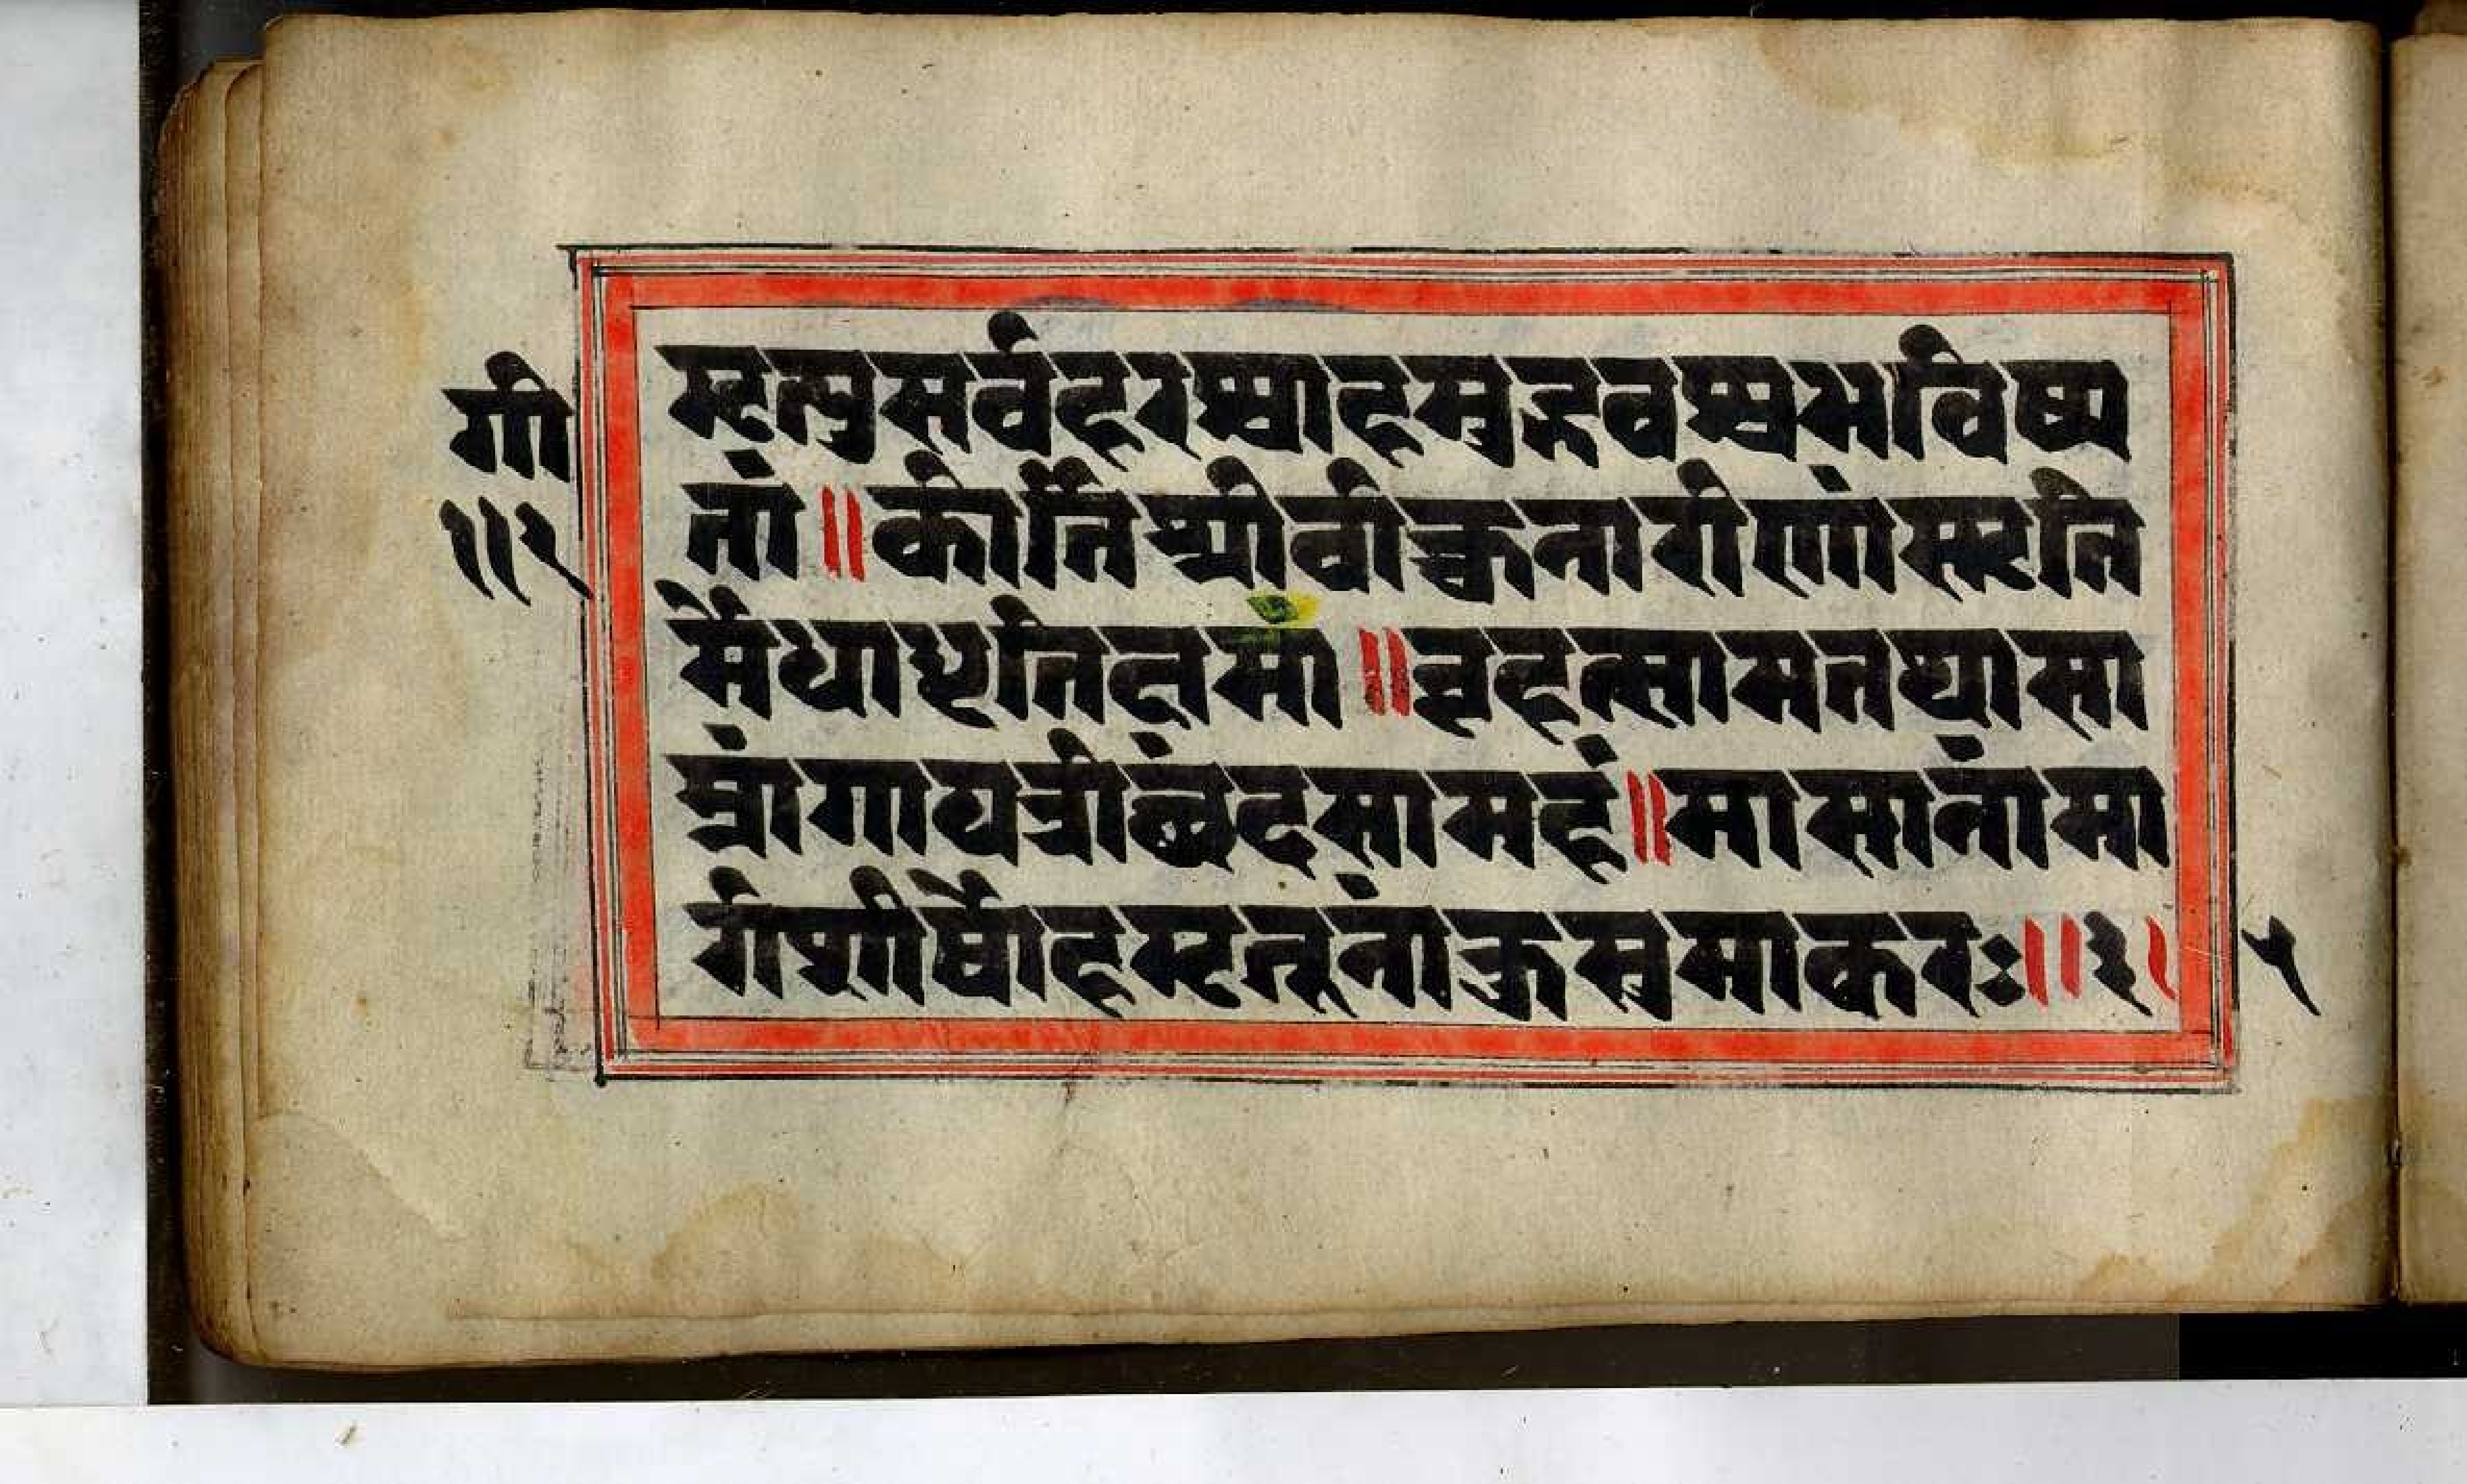 मृत्युसर्वहरश्चाहमुद्भवश्चभविष्य
तां॥कीर्तिश्रीवाक्चनारीणांस्मृति
र्मेधाधृतिक्षमा॥बृहत्सामतथासा
म्नांगायत्रीछंदसामहं॥मासानांमा
र्गशीर्षोहमृतूनांकुसुमाकरः॥३५
गी
११२